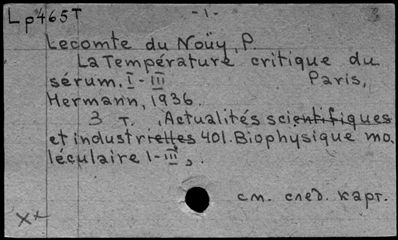 Lp465т
-1-
3
Lecomte du Noüy, P.
La Température critique du
sérum. I-III Paris,
Hermann, 1936.
3 т. (Actualités scientifiques
et industrielles 401. Biophysique mo.
léculaire I-III).
см. след. карт.
xx